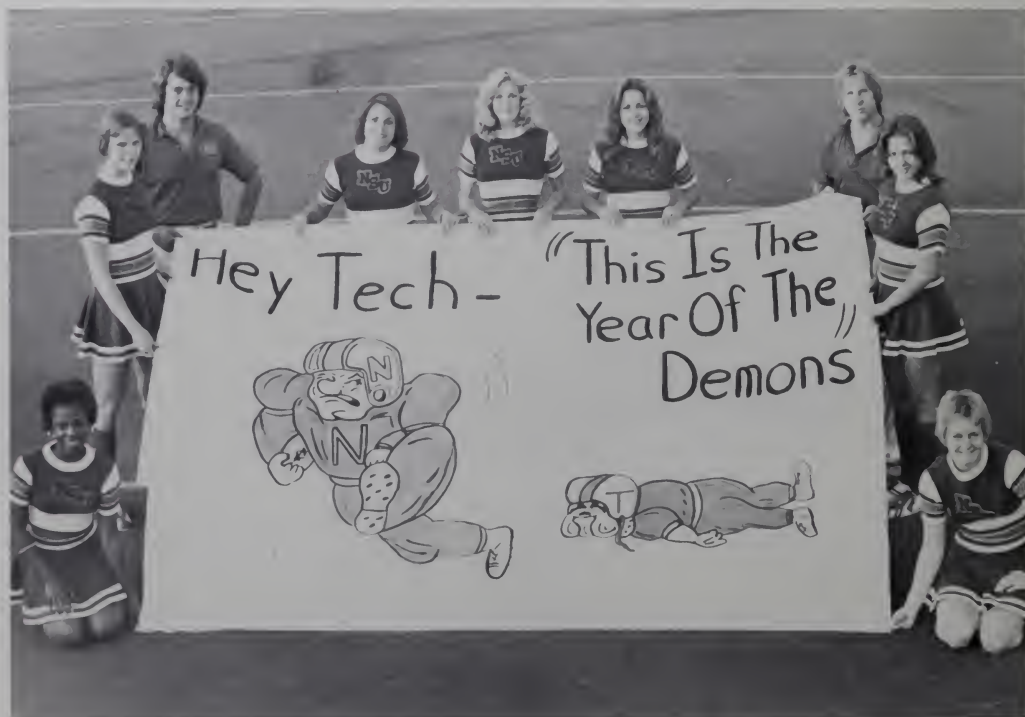 Hey Tech-
"This Is The
Year Of The
Demons"
N
N
T
NSU
NSU